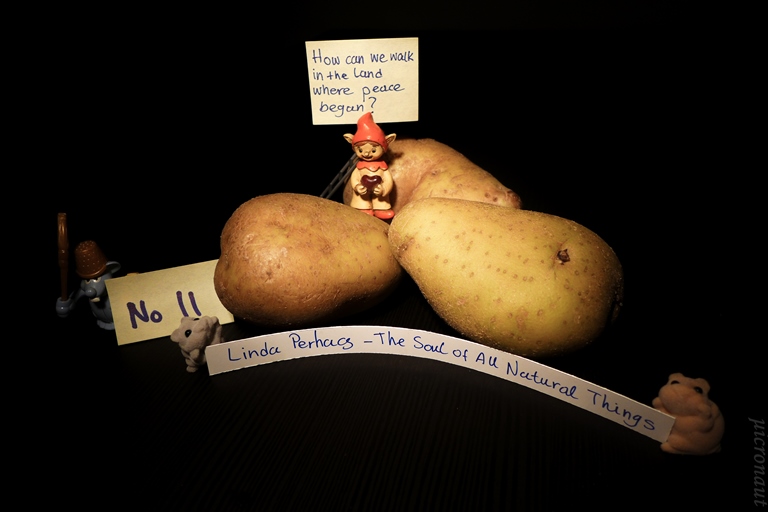 How can we walk
in the land
where peace
began?
No 11
Linda Perhacs – The Soul of All Natural Things
µicronaut